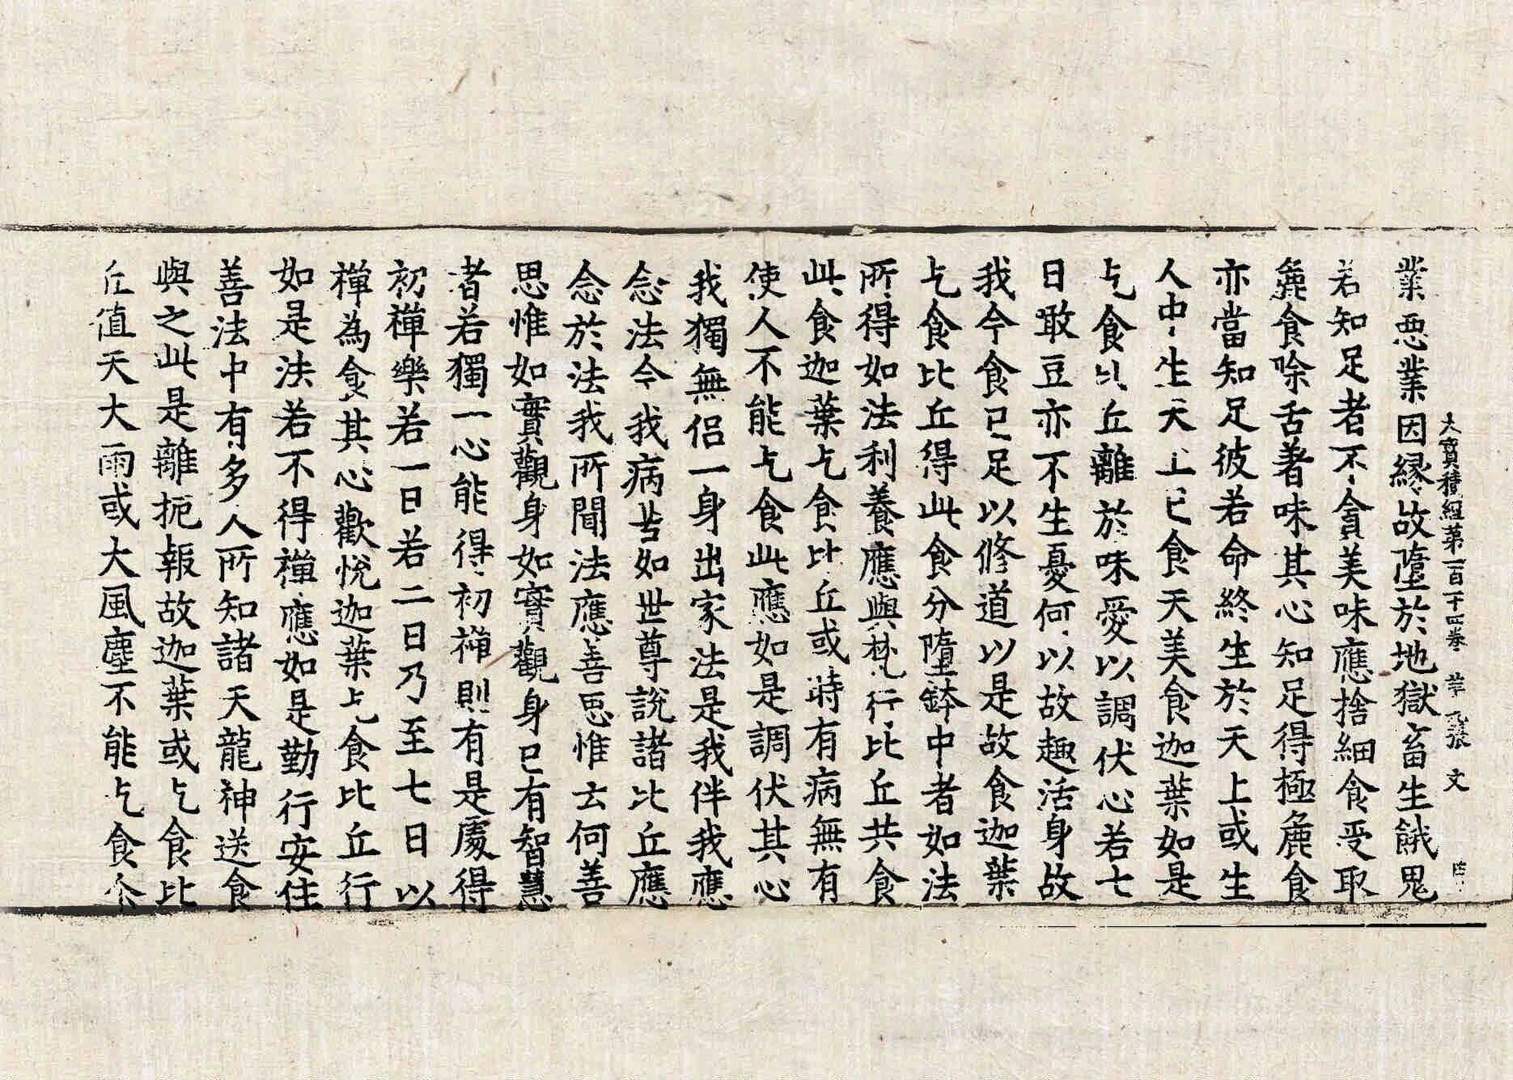 大寶積經第一百十四卷 第九張 文
業惡業因緣故墮於地獄畜生餓鬼
若知足者不貪美味應捨細食受取
麁食除舌著味其心知足得極麁食
亦當知足彼若命終生於天上或生
人中生天上已食天美食迦葉如是
乞食比丘離於味愛以調伏心若七
日噉豆亦不生憂何以故趣活身故
我今食已足以修道以是故食迦葉
乞食比丘得此食分墮鉢中者如法
所得如法利養應與梵行比丘共食
此食迦葉乞食比丘或時有病無有
使人不能乞食此應如是調伏其心
我獨無侶一身出家法是我伴我應
念法今我病苦如世尊說諸比丘應
念於法我所聞法應善思惟云何善
思惟如實觀身如實觀身已有智慧
者若獨一心能得初禪則有是處得
初禪樂若一日若二日乃至七日以
禪為食其心歡悅迦葉乞食比丘行
如是法若不得禪應如是勤行安住
善法中有多人所知諸天龍神送食
與之此是離扼報故迦葉或乞食比
丘值天大雨或大風塵不能乞食尒